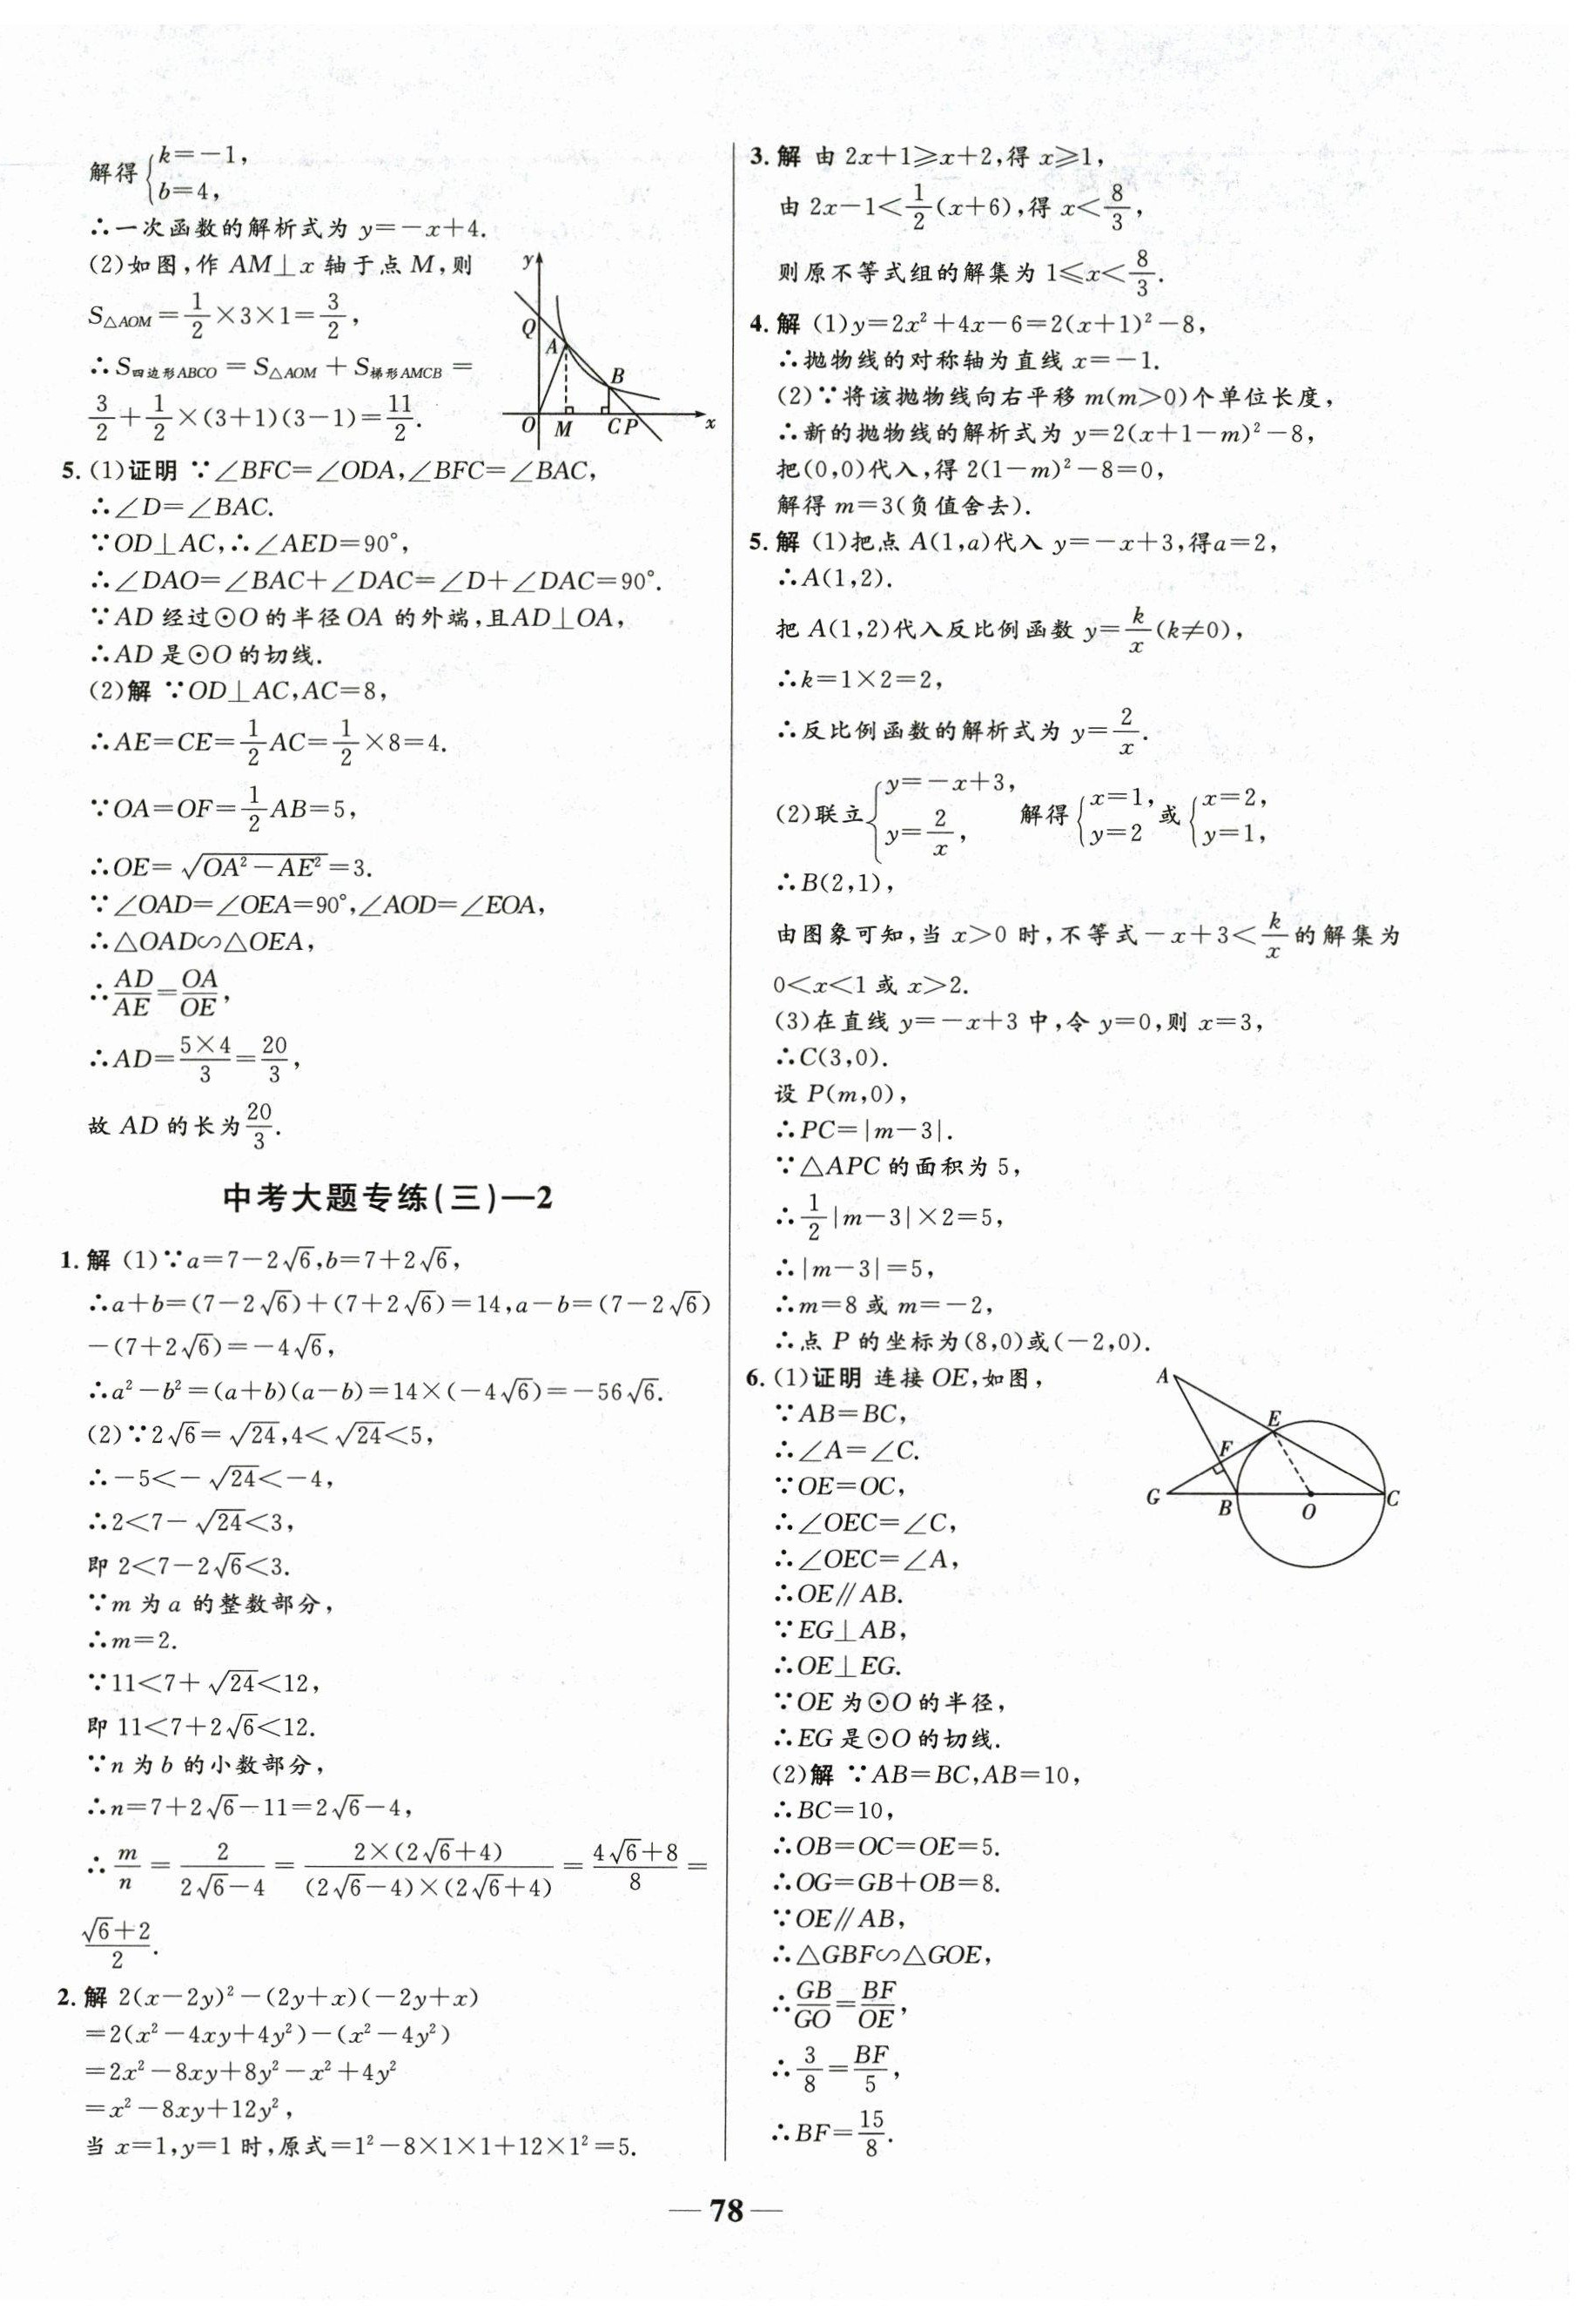 解得{k=-1,
b=4,
∴一次函数的解析式为 y=-x+4.
(2)如图,作 AM⊥x 轴于点 M,则
S△AOM=1/2×3×1=3/2,
∴S四边形ABCO=S△AOM+S梯形AMCB=
3/2+1/2×(3+1)(3-1)=11/2.
y
Q
A
B
O M C P x
5.(1)证明 ∵∠BFC=∠ODA,∠BFC=∠BAC,
∴∠D=∠BAC.
∵OD⊥AC,∴∠AED=90°,
∴∠DAO=∠BAC+∠DAC=∠D+∠DAC=90°.
∵AD 经过⊙O 的半径 OA 的外端,且AD⊥OA,
∴AD 是⊙O 的切线.
(2)解 ∵OD⊥AC,AC=8,
∴AE=CE=1/2AC=1/2×8=4.
∵OA=OF=1/2AB=5,
∴OE=√(OA²-AE²)=3.
∵∠OAD=∠OEA=90°,∠AOD=∠EOA,
∴△OAD∽△OEA,
∴AD/AE=OA/OE,
∴AD=5×4/3=20/3,
故 AD 的长为20/3.
中考大题专练(三)—2
1.解 (1)∵a=7-2√6,b=7+2√6,
∴a+b=(7-2√6)+(7+2√6)=14,a-b=(7-2√6)
-(7+2√6)=-4√6,
∴a²-b²=(a+b)(a-b)=14×(-4√6)=-56√6.
(2)∵2√6=√24,4<√24<5,
∴-5<-√24<-4,
∴2<7-√24<3,
即 2<7-2√6<3.
∵m 为 a 的整数部分,
∴m=2.
∵11<7+√24<12,
即 11<7+2√6<12.
∵n 为 b 的小数部分,
∴n=7+2√6-11=2√6-4,
∴m/n=2/(2√6-4)=2×(2√6+4)/((2√6-4)×(2√6+4))=(4√6+8)/8=
(√6+2)/2.
2.解 2(x-2y)²-(2y+x)(-2y+x)
=2(x²-4xy+4y²)-(x²-4y²)
=2x²-8xy+8y²-x²+4y²
=x²-8xy+12y²,
当 x=1,y=1 时,原式=1²-8×1×1+12×1²=5.
3.解 由 2x+1≥x+2,得 x≥1,
由 2x-1<1/2(x+6),得 x<8/3,
则原不等式组的解集为 1≤x<8/3.
4.解 (1)y=2x²+4x-6=2(x+1)²-8,
∴抛物线的对称轴为直线 x=-1.
(2)∵将该抛物线向右平移 m(m>0)个单位长度,
∴新的抛物线的解析式为 y=2(x+1-m)²-8,
把(0,0)代入,得 2(1-m)²-8=0,
解得 m=3(负值舍去).
5.解 (1)把点 A(1,a)代入 y=-x+3,得a=2,
∴A(1,2).
把 A(1,2)代入反比例函数 y=k/x(k≠0),
∴k=1×2=2,
∴反比例函数的解析式为 y=2/x.
(2)联立{y=-x+3, y=2/x, 解得{x=1, y=2 或{x=2, y=1,
∴B(2,1),
由图象可知,当 x>0 时,不等式-x+3<k/x的解集为
0<x<1 或 x>2.
(3)在直线 y=-x+3 中,令 y=0,则 x=3,
∴C(3,0).
设 P(m,0),
∴PC=|m-3|.
∵△APC 的面积为 5,
∴1/2|m-3|×2=5,
∴|m-3|=5,
∴m=8 或 m=-2,
∴点 P 的坐标为(8,0)或(-2,0).
6.(1)证明 连接 OE,如图,
∵AB=BC,
∴∠A=∠C.
∵OE=OC,
∴∠OEC=∠C,
∴∠OEC=∠A,
∴OE∥AB.
∵EG⊥AB,
∴OE⊥EG.
∵OE 为⊙O 的半径,
∴EG 是⊙O 的切线.
A
E
F
G B O C
(2)解 ∵AB=BC,AB=10,
∴BC=10,
∴OB=OC=OE=5.
∴OG=GB+OB=8.
∵OE∥AB,
∴△GBF∽△GOE,
∴GB/GO=BF/OE,
∴3/8=BF/5,
∴BF=15/8.
—78—